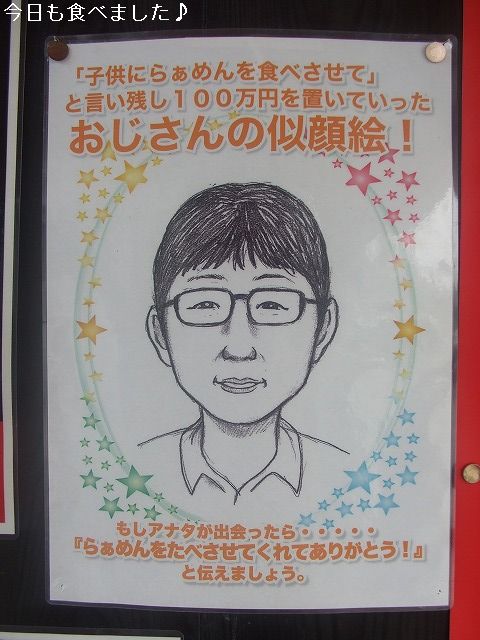 今日も食べました♪
「子供にらぁめんを食べさせて」
と言い残し100万円を置いていった
おじさんの似顔絵！
もしアナタが出会ったら・・・・・
『らぁめんをたべさせてくれてありがとう！』
と伝えましょう。